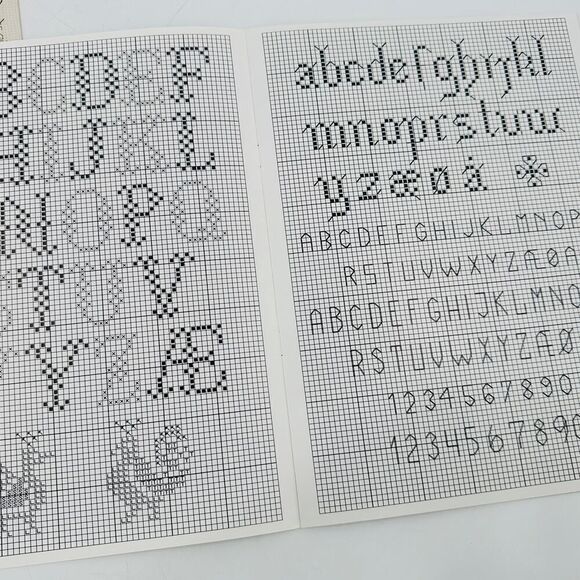 BCDEF
HIJKL
NOPQ
TUV
YZÆ
abcdefghijkl
mnoprstuvw
yzæøå
ABCDEFGHIJKLMNOP
RSTUVWXYZÆØA
ABCDEFGHIJKLMNO
RSTUVWXYZÆØ
1234567890
1234567890